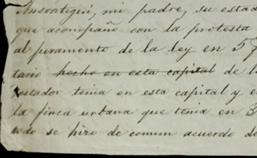 Ansorategui, mi padre, su estad
que acompañé con la protesta
al juramento de la ley en 5 f
tario hecho en esta capital de l
testador tenia en esta capital y e
la finca urbana que tenia en
todo se hizo de comun acuerdo d